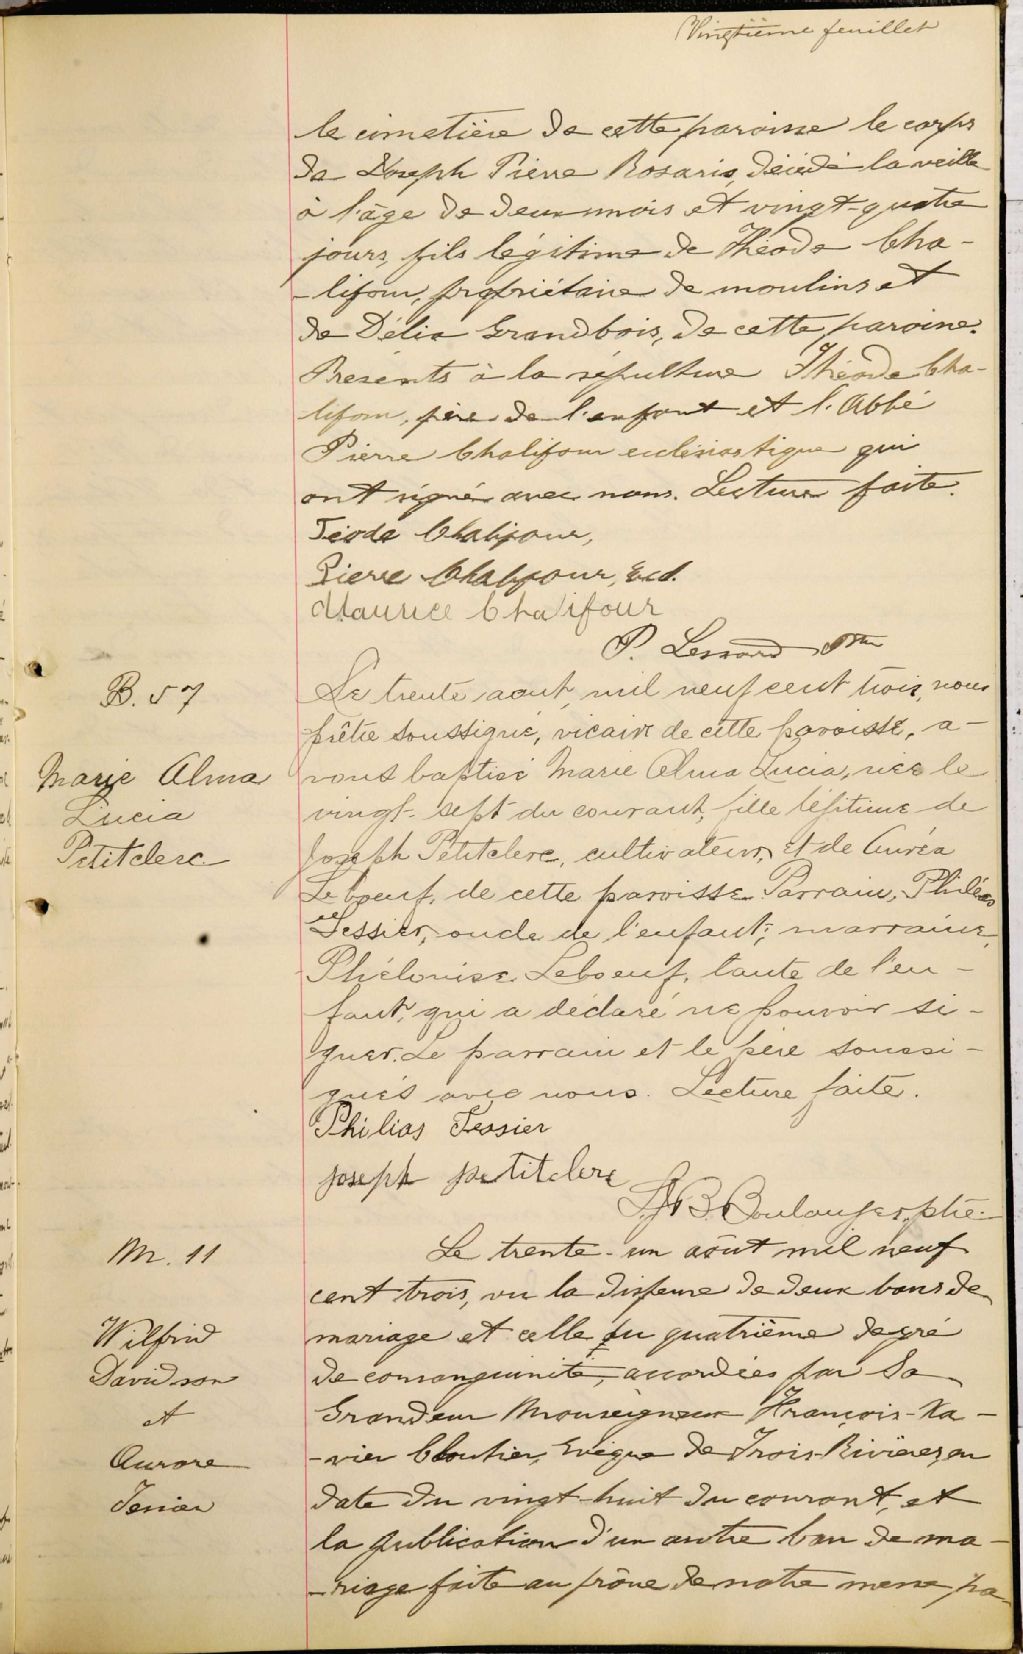 Vingtième feuillet
le cimetière de cette paroisse le corps
de Joseph Pierre Rosario, décédé la veille
à l'âge de deux mois et vingt-quatre
jours, fils légitime de Théode Cha-
-lifour, propriétaire de moulins et
de Délia Grandbois, de cette paroisse.
Présents à la sépulture Théode Cha-
lifour, père de l'enfant et l'Abbé
Pierre Chalifour ecclésiastique qui
ont signé avec nous. Lecture faite.
Téode Chalifour,
Pierre Chalifour, Eccl.
Maurice Chalifour
P. Lessard Ptre
B. 57
Marie Alma
Lucia
Petitclerc
Le trente aout, mil neuf cent trois, nous
prêtre soussigné, vicaire de cette paroisse, a-
vons baptisé Marie Alma Lucia, née le
vingt-sept du courant, fille légitime de
Joseph Petitclerc, cultivateur, et de Auréa
Leboeuf, de cette paroisse. Parrain, Philéas
Tessier, oncle de l'enfant; marraine,
Phélonise Leboeuf, tante de l'en-
fant, qui a déclaré ne pouvoir si-
gner. Le parrain et le père soussi-
gnés avec nous. Lecture faite.
Philias Tessier
Joseph petitclerc
B. Boulanger, ptre.
M. 11
Wilfrid
Davidson
et
Aurore
Tessier
Le trente-un août mil neuf
cent trois, vu la dispense de deux bans de
mariage et celle du quatrième degré
de consanguinité, accordées par Sa
Grandeur Monseigneur François-Xa-
-vier Cloutier, Evêque de Trois-Rivières, en
date du vingt-huit du courant, et
la publication d'un autre ban de ma-
-riage faite au prône de notre messe pa-